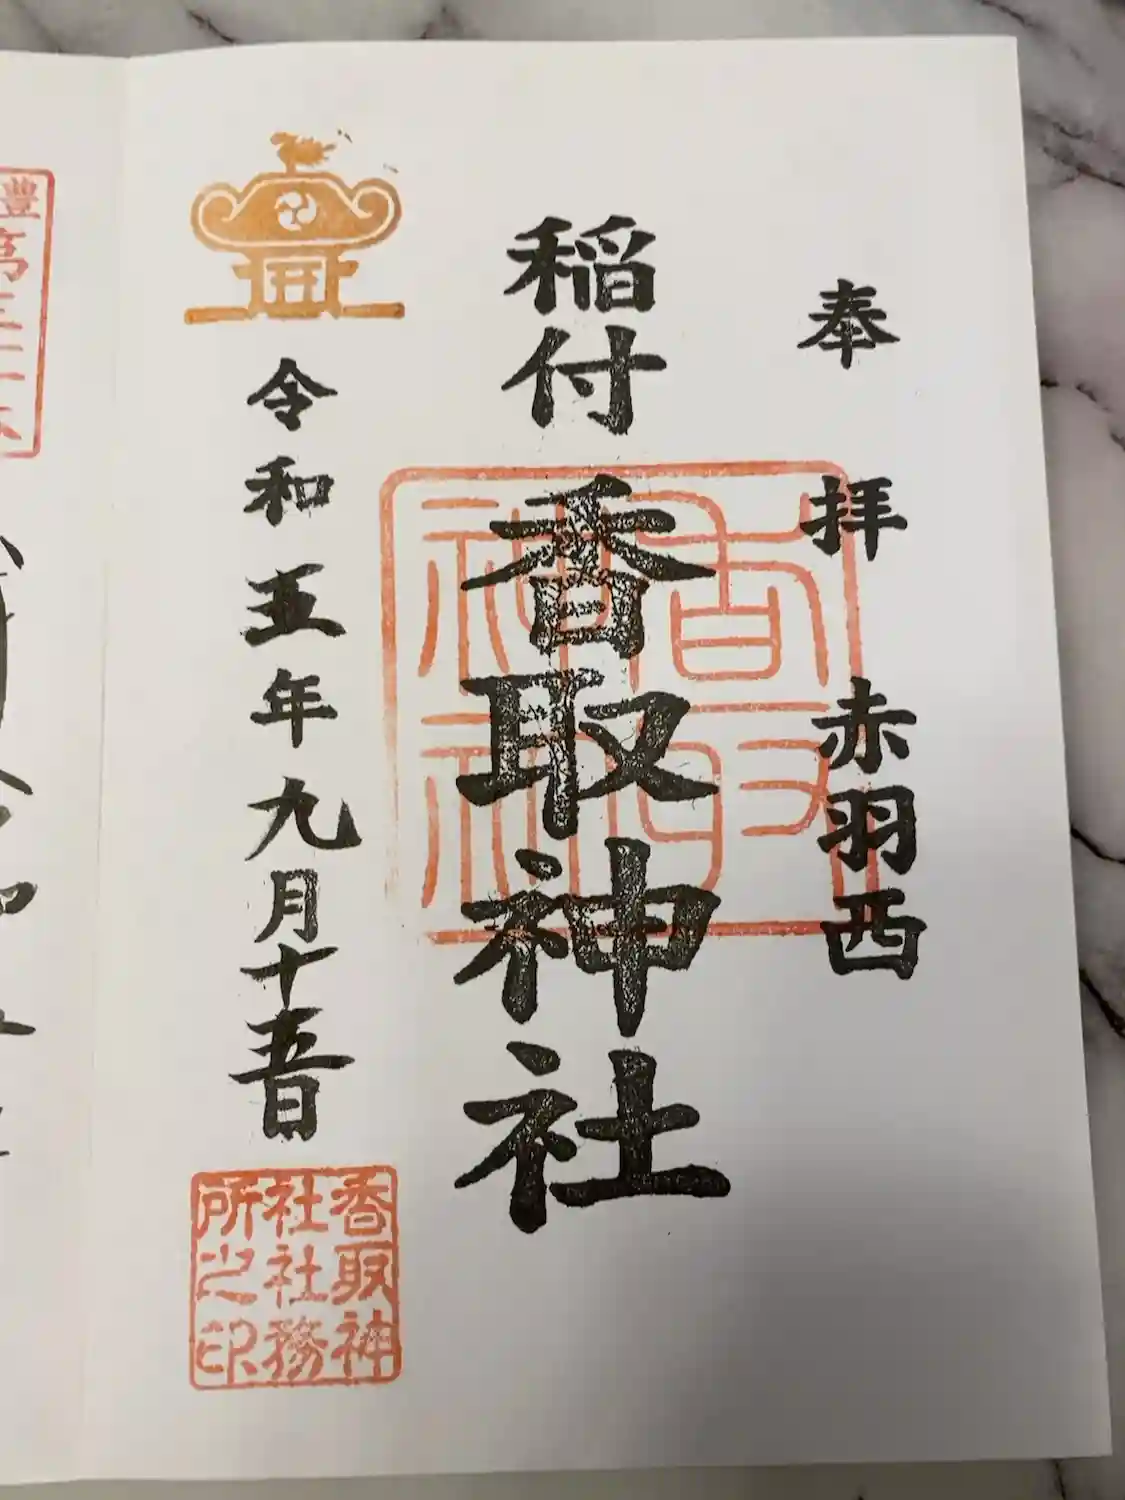 奉拝 赤羽西
稲付 香取神社
香取神社
令和五年九月十五日
香取神
社社務
所之印